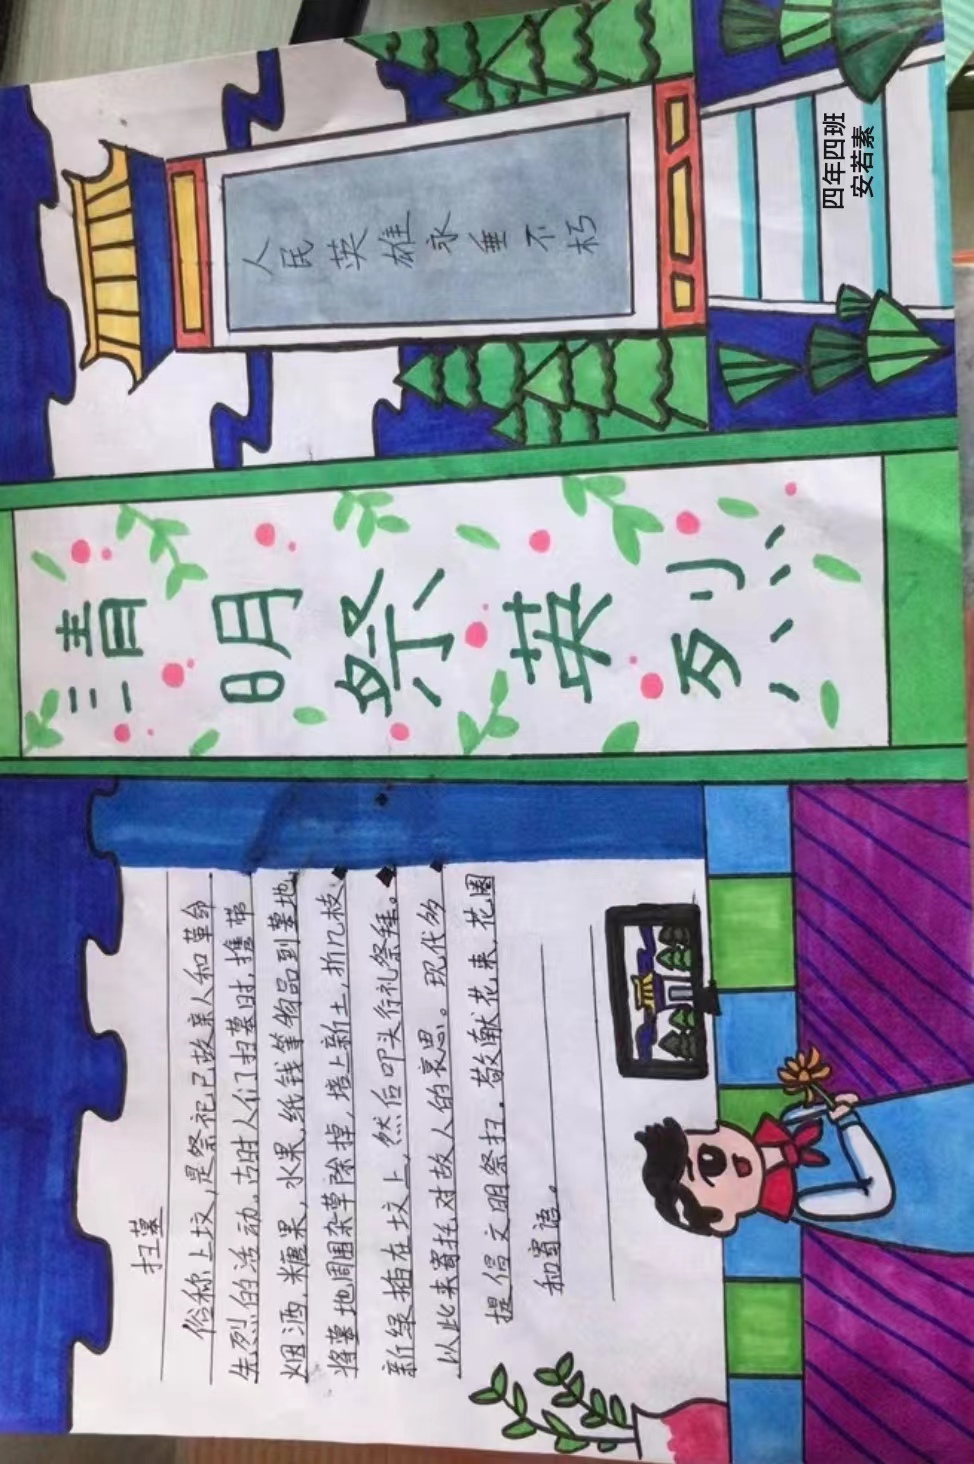 清明祭英烈
扫墓
俗称上坟,是祭祀已故亲人和革命
先烈的活动。古时人们扫墓时,携带
烟酒,糖果,水果,纸钱等物品到墓地,
将墓地周围杂草除掉,培上新土,折几枝
新绿插在坟上,然后叩头行礼祭拜。
以此来寄托对故人的哀思。现代多
提倡文明祭扫,敬献花束、花圈
和寄语。
人民英雄永垂不朽
四年四班
安若素